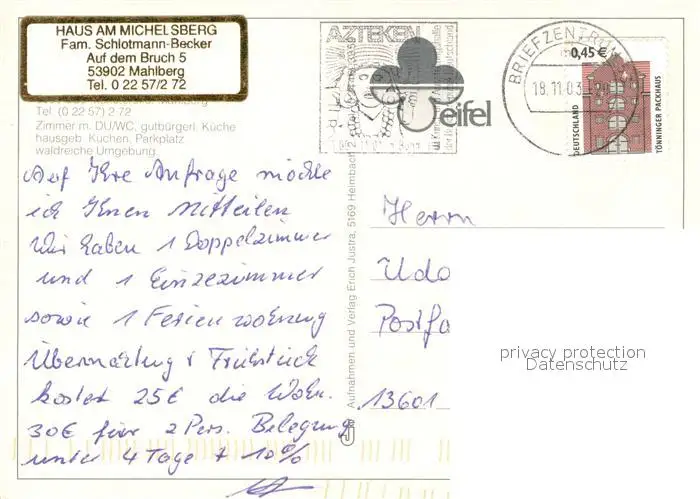 HAUS AM MICHELSBERG
Fam. Schlotmann-Becker
Auf dem Bruch 5
53902 Mahlberg
Tel. 0 22 57/2 72
Tel. (0 22 57) 2 72
Zimmer m. DU/WC, gutbürgerl. Küche
hausgeb. Kuchen, Parkplatz
waldreiche Umgebung.
Auf Ihre Anfrage möchte
ich Ihnen Mitteilen
Wir haben 1 Doppelzimmer
und 1 Einzezimmer
sowie 1 Ferienwohnung
Übernachtung + Frühstück
kostet 25€ die Wohn.
30€ für 2 Pers. Belegung
unter 4 Tage + 10%
Aufnahmen und Verlag Erich Justra, 5169 Heimbach
AZTEKEN
eifel
BRIEFZENTRUM
18.11.03
0,45 €
DEUTSCHLAND
TÖNNINGER PACKHAUS
Herrn
Udo
Postfa
13601
privacy protection
Datenschutz